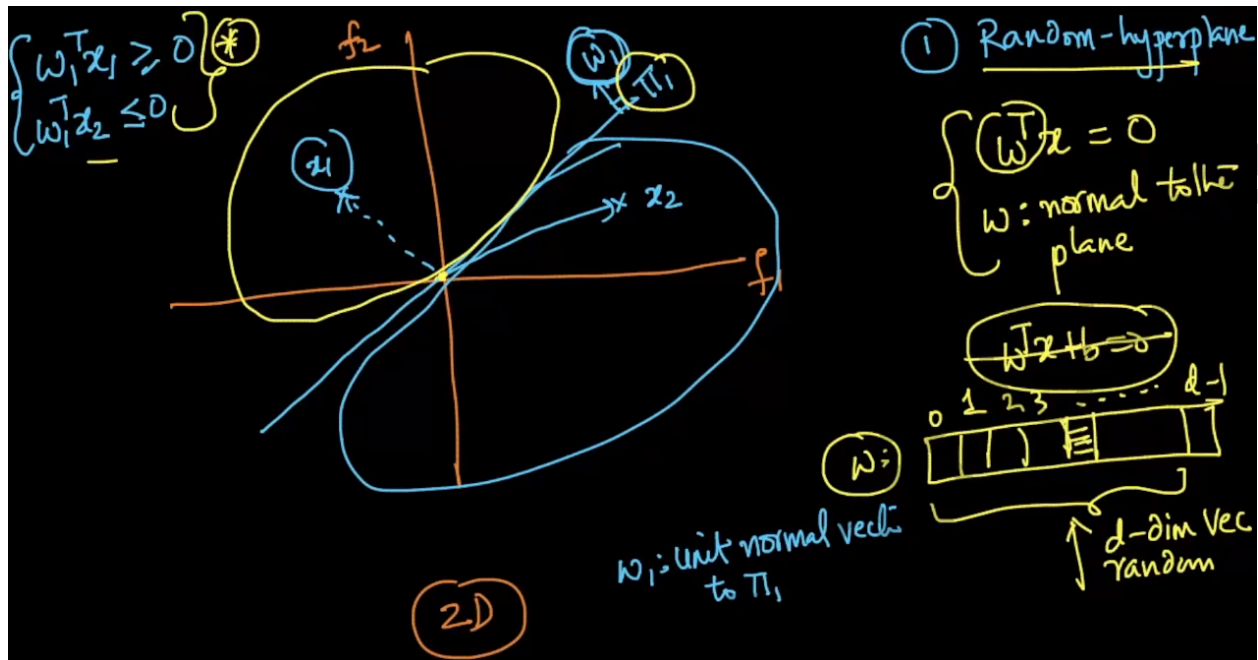 w₁ᵀx₁ ≥ 0 *
w₁ᵀx₂ ≤ 0
f₂
w₁
π₁
x₁
x₂
f₁
2D
w₁: unit normal vect
to π₁
① Random-hyperplane
wᵀx = 0
w: normal to the
plane
wᵀx+b=0
0 1 2 3 ...... d-1
w:
d-dim vec
random